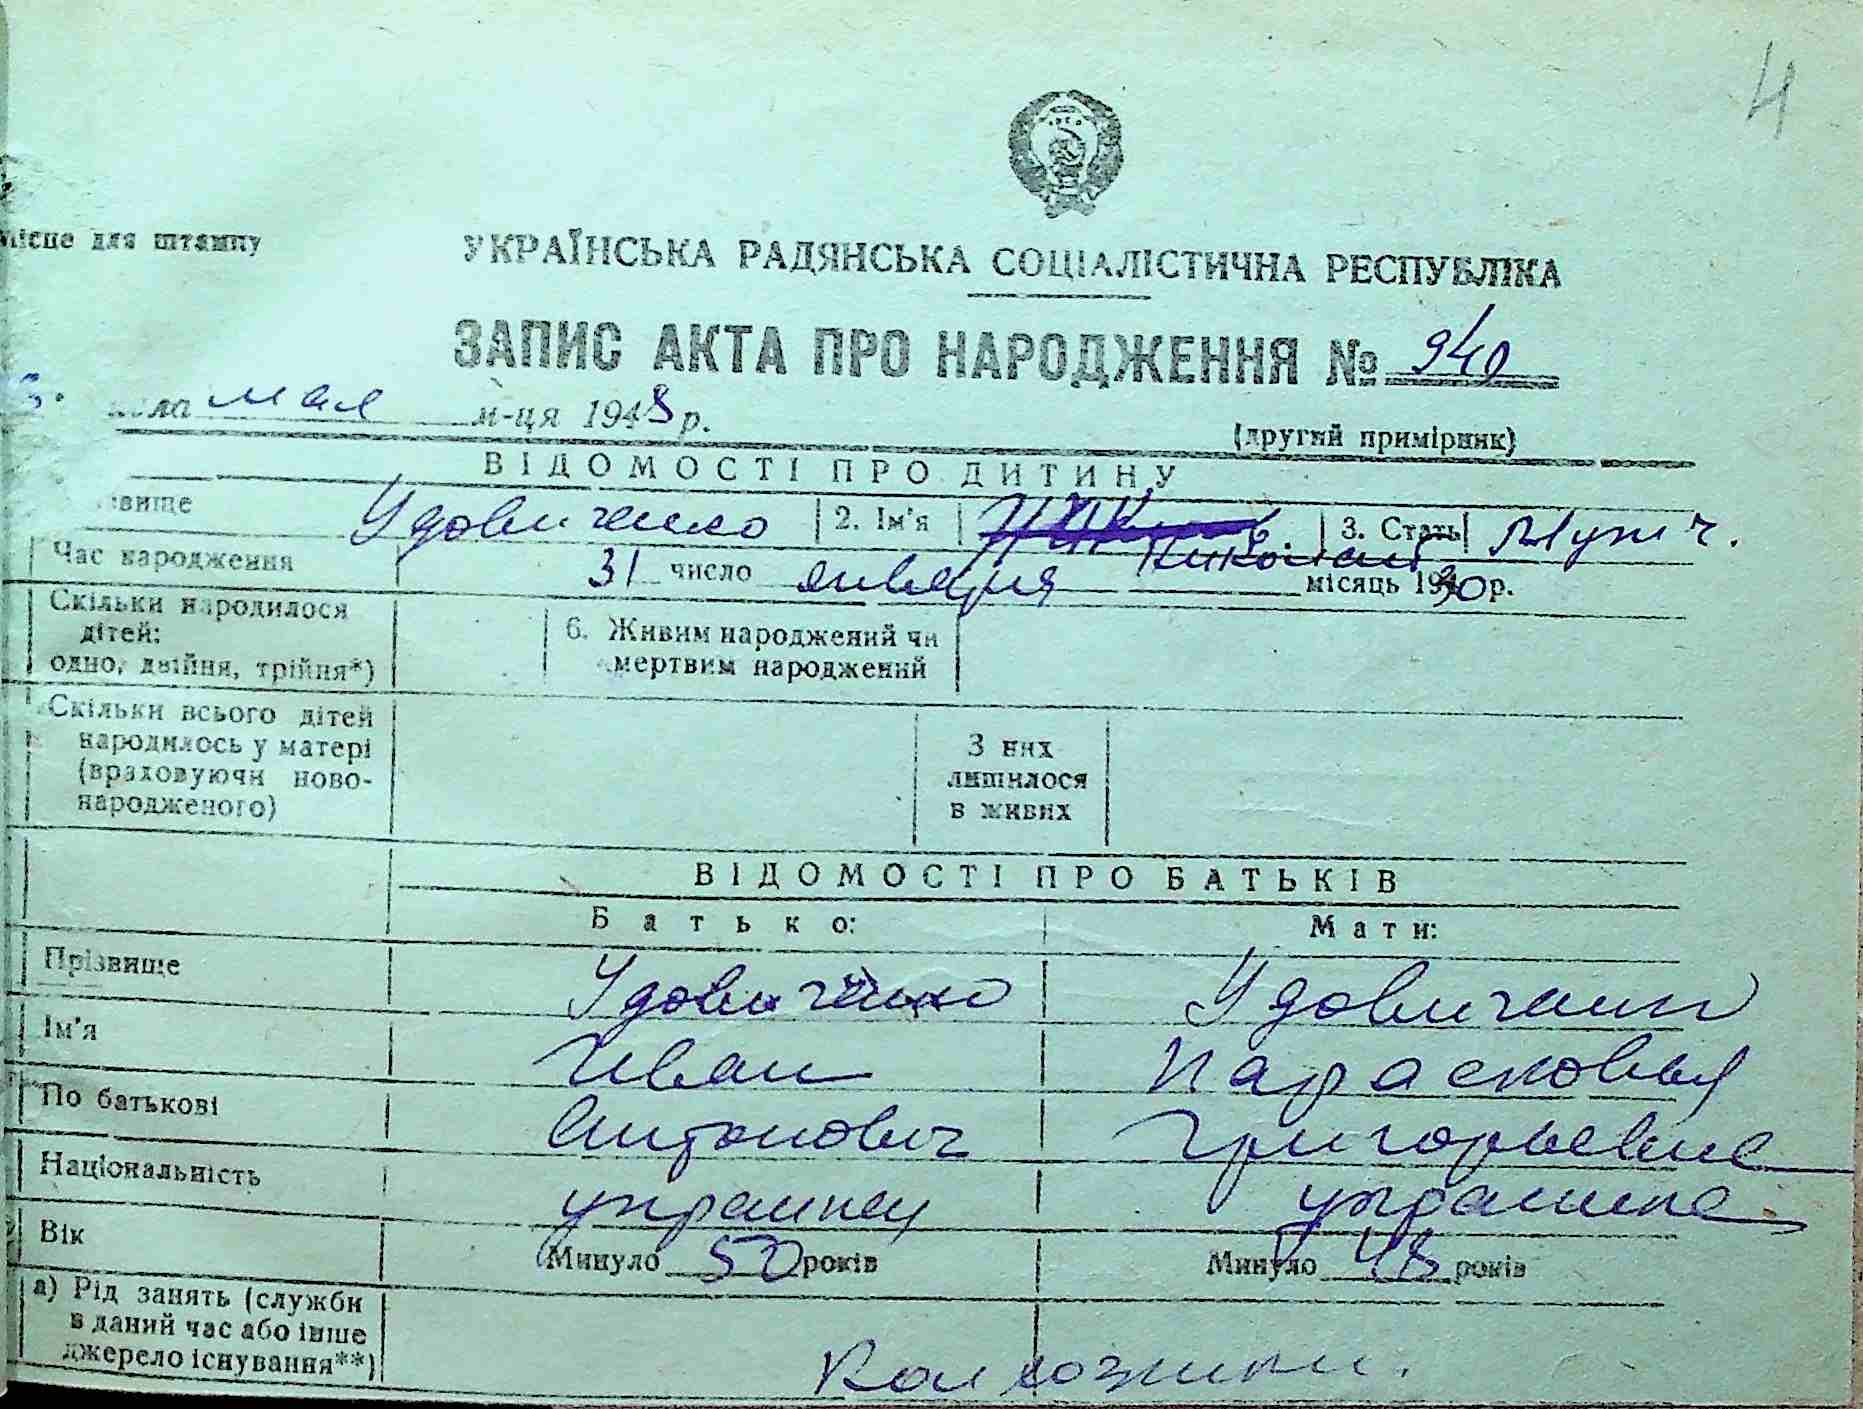 4
Місце для штампу
УКРАЇНСЬКА РАДЯНСЬКА СОЦІАЛІСТИЧНА РЕСПУБЛІКА
ЗАПИС АКТА ПРО НАРОДЖЕННЯ № 940
мая м-ця 1948 р.
(другий примірник)
ВІДОМОСТІ ПРО ДИТИНУ
Удовиченко 2. Ім'я Николай 3. Стать Мужч.
Час народження 31 число января місяць 1930 р.
Скільки народилося дітей: одно, двійня, трійня*) 6. Живим народжений чи мертвим народжений
Скільки всього дітей народилось у матері (враховуючи ново-народженого) З них лишилося в живих
ВІДОМОСТІ ПРО БАТЬКІВ
Батько: Мати:
Прізвище Удовиченко Удовиченко
Ім'я Иван Парасковья
По батькові Антонович Григорьевна
Національність украинец украинка
Вік Минуло 50 років Минуло 48 років
а) Рід занять (служби в даний час або інше джерело існування**) Колхозники.